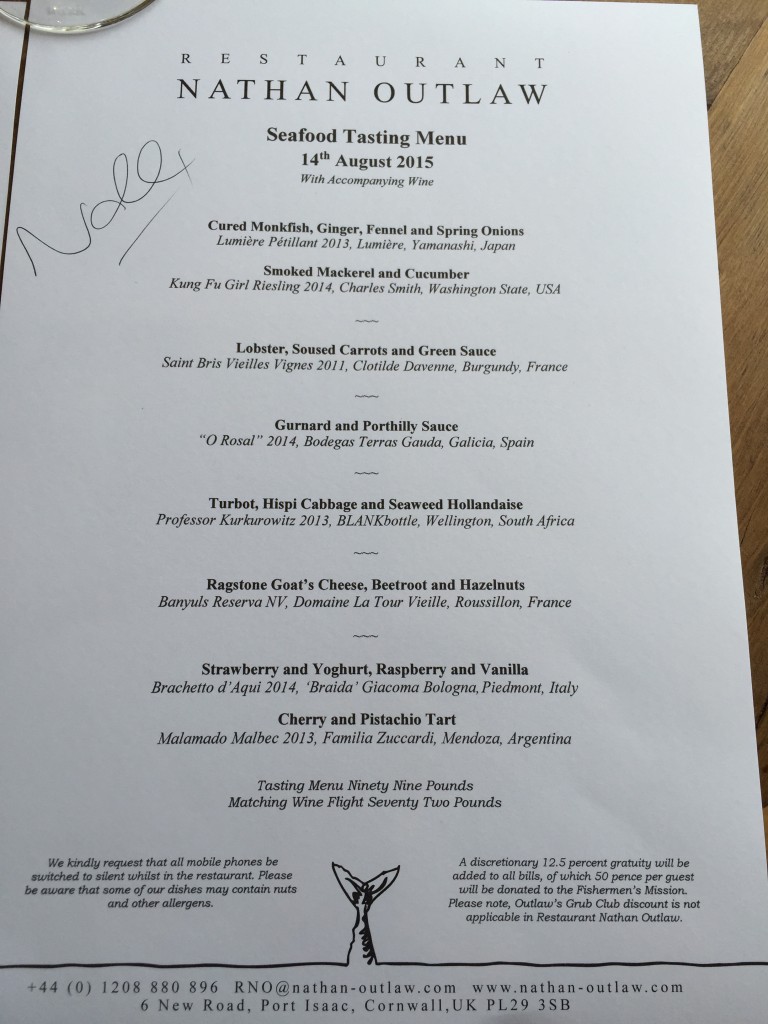 RESTAURANT
NATHAN OUTLAW
Seafood Tasting Menu
14th August 2015
With Accompanying Wine
Cured Monkfish, Ginger, Fennel and Spring Onions
Lumière Pétillant 2013, Lumière, Yamanashi, Japan
Smoked Mackerel and Cucumber
Kung Fu Girl Riesling 2014, Charles Smith, Washington State, USA
~~~
Lobster, Soused Carrots and Green Sauce
Saint Bris Vieilles Vignes 2011, Clotilde Davenne, Burgundy, France
~~~
Gurnard and Porthilly Sauce
“O Rosal” 2014, Bodegas Terras Gauda, Galicia, Spain
~~~
Turbot, Hispi Cabbage and Seaweed Hollandaise
Professor Kurkurowitz 2013, BLANKbottle, Wellington, South Africa
~~~
Ragstone Goat’s Cheese, Beetroot and Hazelnuts
Banyuls Reserva NV, Domaine La Tour Vieille, Roussillon, France
~~~
Strawberry and Yoghurt, Raspberry and Vanilla
Brachetto d’Aqui 2014, ‘Braida’ Giacoma Bologna, Piedmont, Italy
Cherry and Pistachio Tart
Malamado Malbec 2013, Familia Zuccardi, Mendoza, Argentina
Tasting Menu Ninety Nine Pounds
Matching Wine Flight Seventy Two Pounds
We kindly request that all mobile phones be
switched to silent whilst in the restaurant. Please
be aware that some of our dishes may contain nuts
and other allergens.
A discretionary 12.5 percent gratuity will be
added to all bills, of which 50 pence per guest
will be donated to the Fishermen’s Mission.
Please note, Outlaw’s Grub Club discount is not
applicable in Restaurant Nathan Outlaw.
+44 (0) 1208 880 896 RNO@nathan-outlaw.com www.nathan-outlaw.com
6 New Road, Port Isaac, Cornwall,UK PL29 3SB